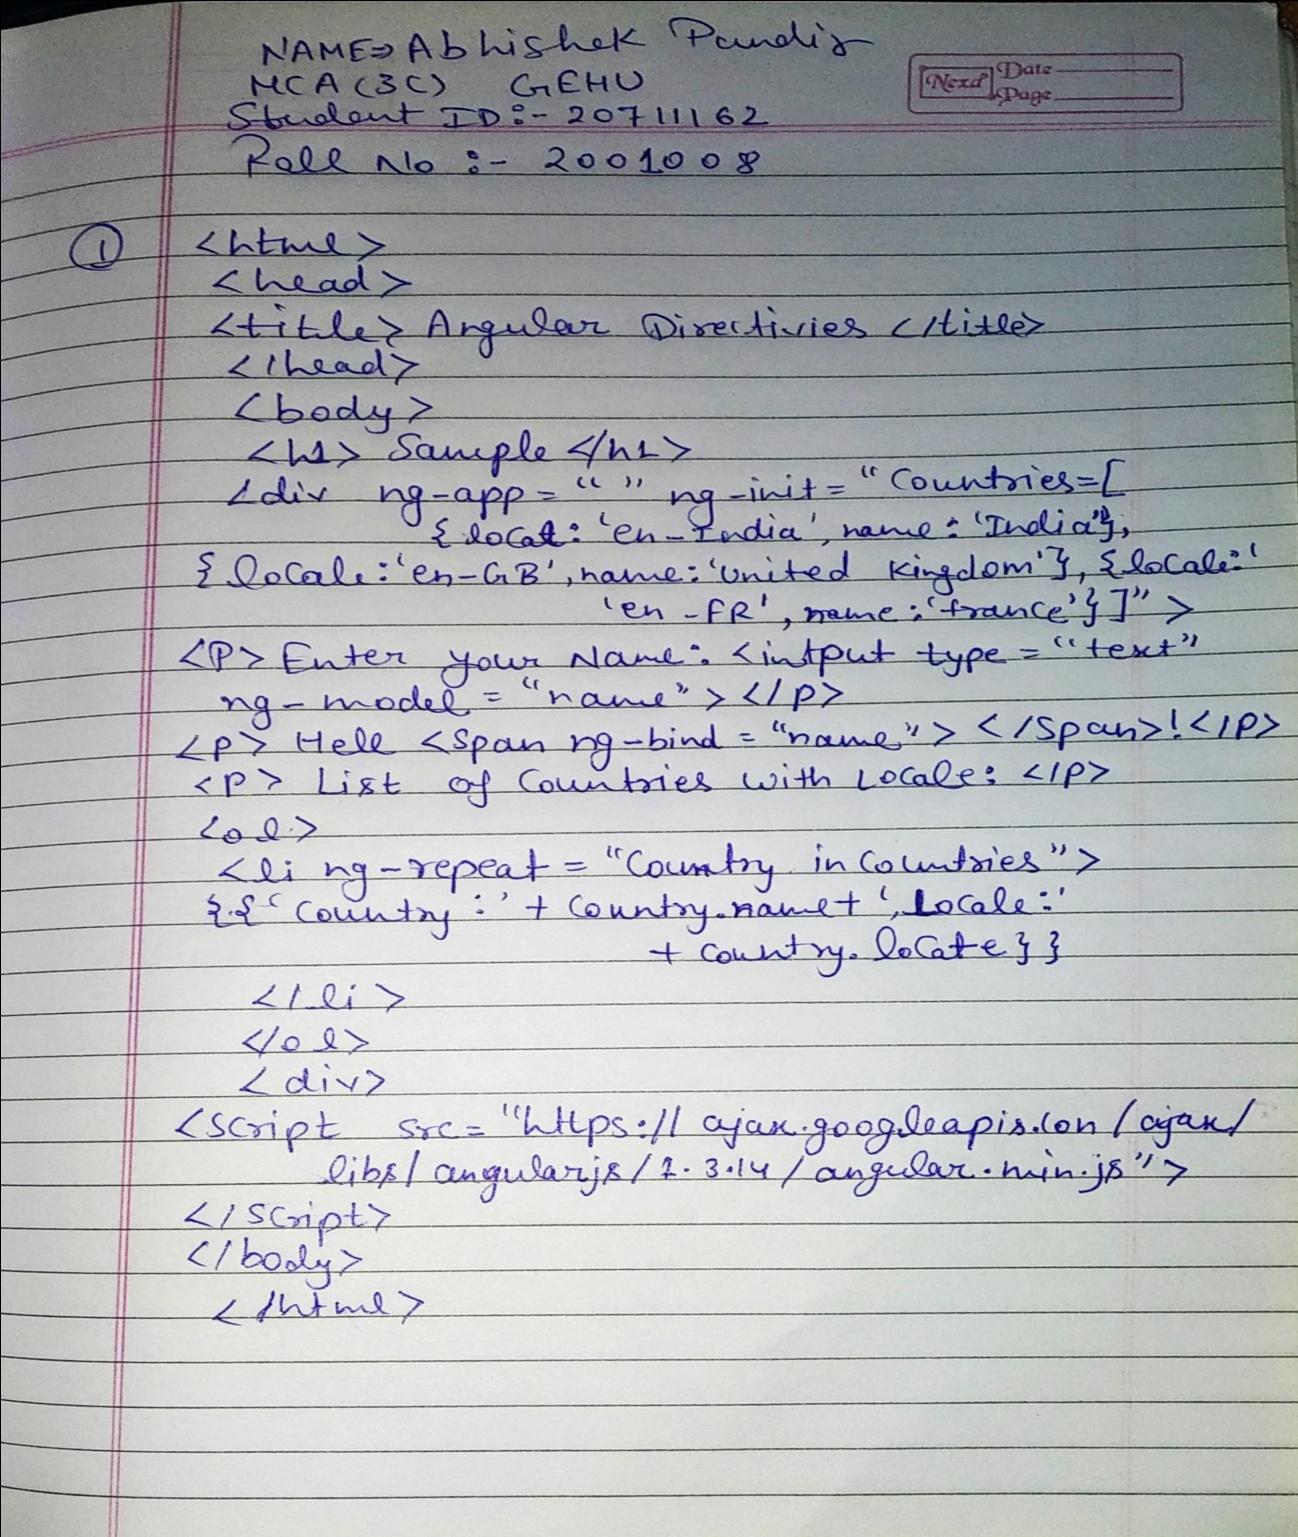 NAME⇒ Abhishek Pandir
MCA (3C) GEHU
Next Date
Page
Student ID :- 20711162
Roll No :- 2001008
① <html>
<head>
<title> Angular Directivies </title>
</head>
<body>
<h1> Sample </h1>
<div ng-app = "" ng-init = "Countries=[
{ locat: 'en-India', name: 'India'},
{ locale: 'en-GB', name: 'United Kingdom'}, {locale:'
'en-FR', name: 'france'}]" >
<P> Enter your Name: <intput type = "text"
ng-model = "name" > </p>
<p> Hell <span ng-bind = "name"> </span>!</p>
<p> List of Countries with Locale: </p>
<ol>
<li ng-repeat = "Country in Countries">
{{ 'Country:' + Country.name + ', Locale:'
+ country.locate}}
</li>
</ol>
<div>
<script src= "https://ajax.googleapis.con/ajax/
libs/angularjs/1.3.14/angular.min.js">
</script>
</body>
</html>